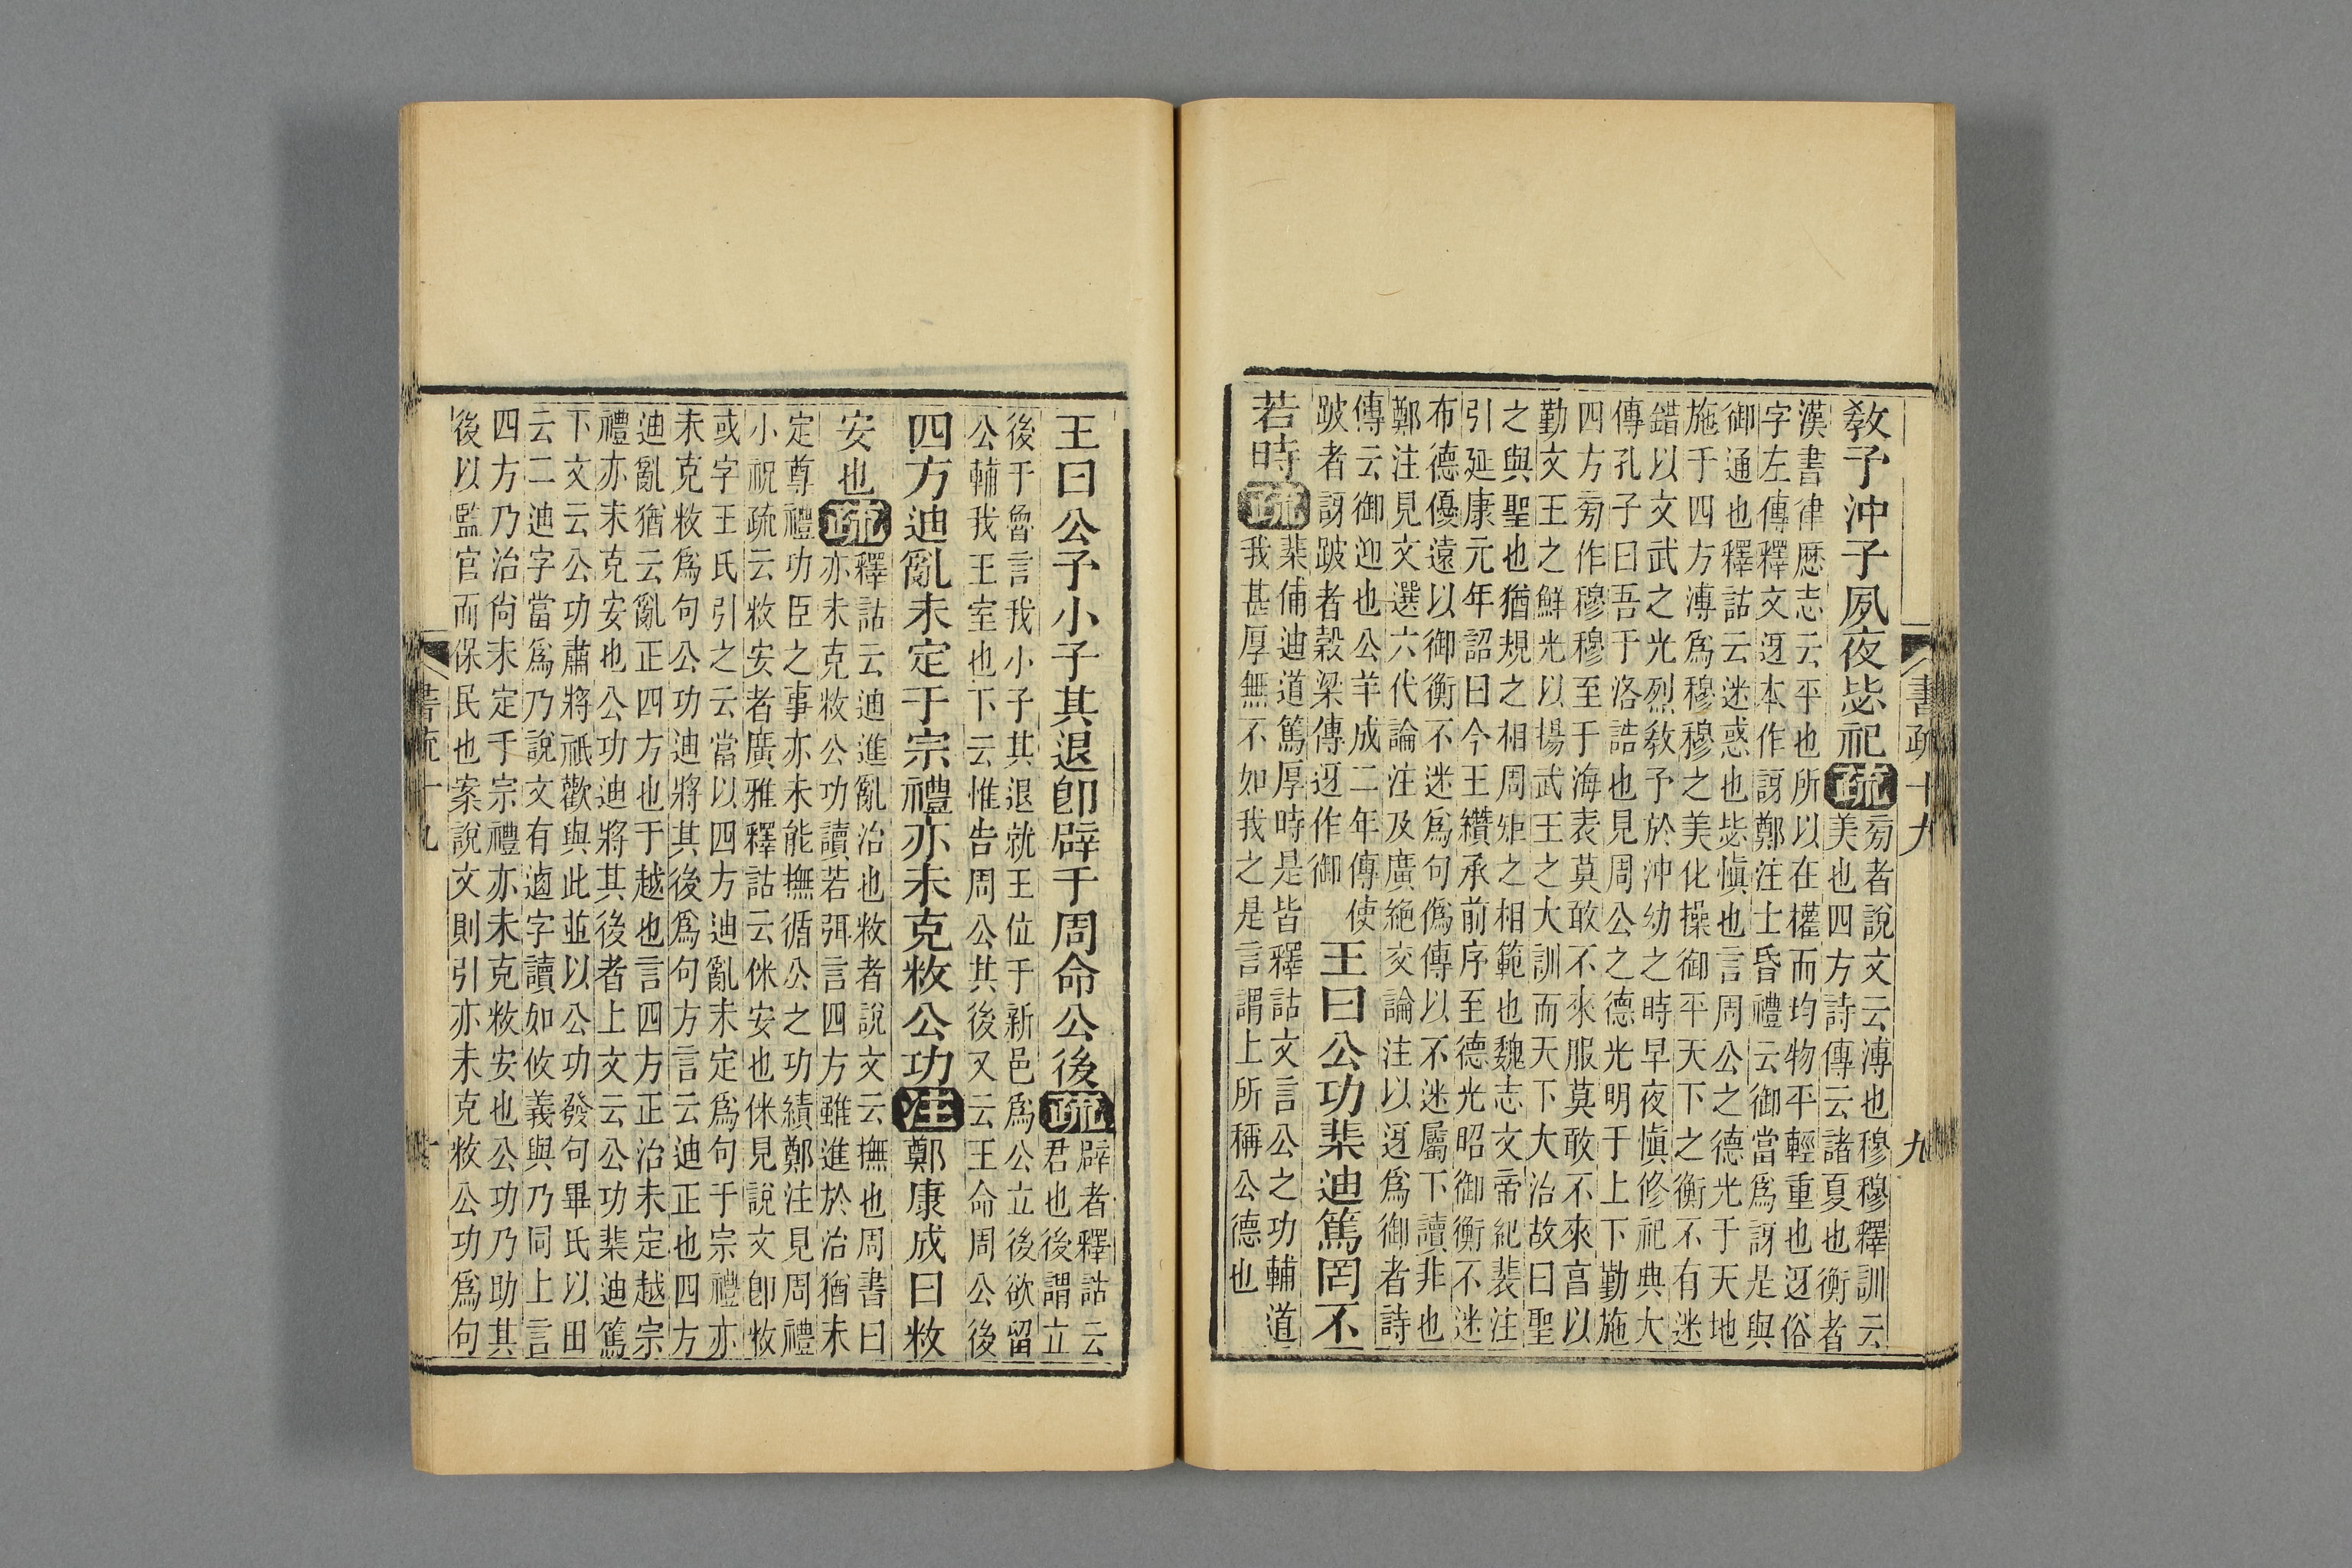 書疏十九　九
教予沖子夙夜毖祀疏
旉者說文云溥也穆穆釋訓云
美也四方詩傳云諸夏也衡者
漢書律歷志云平也所以在權而均物平輕重也迓俗
字左傳釋文迓本作訝鄭注士昏禮云御當爲訝是與
御通也釋詁云迷惑也毖愼也言周公之德光于天地
施于四方溥爲穆穆之美化操御平天下之衡不有迷
錯以文武之光烈教予於沖幼之時早夜愼修祀典大
傳孔子曰吾于洛誥也見周公之德光明于上下勤施
四方旉作穆穆至于海表莫敢不來服莫敢不來亯以
勤文王之鮮光以揚武王之大訓而天下大治故曰聖
之與聖也猶規之相周矩之相範也魏志文帝紀裴注
引延康元年詔曰今王纘承前序至德光昭御衡不迷
布德優遠以御衡不迷爲句僞傳以不迷屬下讀非也
鄭注見文選六代論注及廣絶交論注以迓爲御者詩
傳云御迎也公羊成二年傳使
跛者訝跛者穀梁傳迓作御
王曰公功棐迪篤罔不
若時疏
棐俌迪道篤厚時是皆釋詁文言公之功輔道
我甚厚無不如我之是言謂上所稱公德也
王曰公予小子其退卽辟于周命公後疏
辟者釋詁云
君也後謂立
後于魯言我小子其退就王位于新邑爲公立後欲留
公輔我王室也下云惟告周公其後又云王命周公後
四方迪亂未定于宗禮亦未克敉公功注鄭康成曰敉
安也疏
釋詁云迪進亂治也敉者說文云撫也周書曰
亦未克敉公功讀若弭言四方雖進於治猶未
定尊禮功臣之事亦未能撫循公之功績鄭注見周禮
小祝疏云敉安者廣雅釋詁云侎安也侎見說文卽敉
或字王氏引之云當以四方迪亂未定爲句于宗禮亦
未克敉爲句公功迪將其後爲句方言云迪正也四方
迪亂猶云亂正四方也于越也言四方正治未定越宗
禮亦未克安也公功迪將其後者上文云公功棐迪篤
下文云公功肅將祇歡與此並以公功發句畢氏以田
云二迪字當爲乃說文有逌字讀如攸義與乃同上言
四方乃治尙未定于宗禮亦未克敉安也公功乃助其
後以監官而保民也案說文則引亦未克敉公功爲句